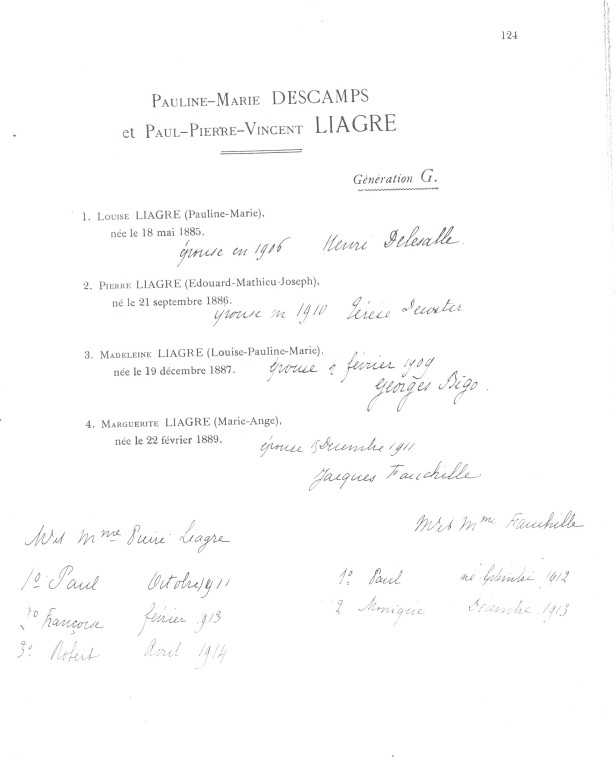 124
PAULINE–MARIE DESCAMPS
et PAUL–PIERRE–VINCENT LIAGRE
Génération G.
1. LOUISE LIAGRE (Pauline-Marie),
née le 18 mai 1885.
épouse en 1906 Henri Delesalle
2. PIERRE LIAGRE (Edouard-Mathieu-Joseph),
né le 21 septembre 1886.
épouse en 1910 Térèse
3. MADELEINE LIAGRE (Louise-Pauline-Marie).
née le 19 décembre 1887.
épouse février 1909
Georges Bigo.
4. MARGUERITE LIAGRE (Marie-Ange),
née le 22 février 1889.
épouse Décembre 1911
Jacques Fauchille
Mr et Mme Pierre Liagre
1º Paul Octobre 1911
2º Françoise février 1913
3º Robert Avril 1914
Mr et Mme Fauchille
1º Paul né Septembre 1912
2 Monique Décembre 1913